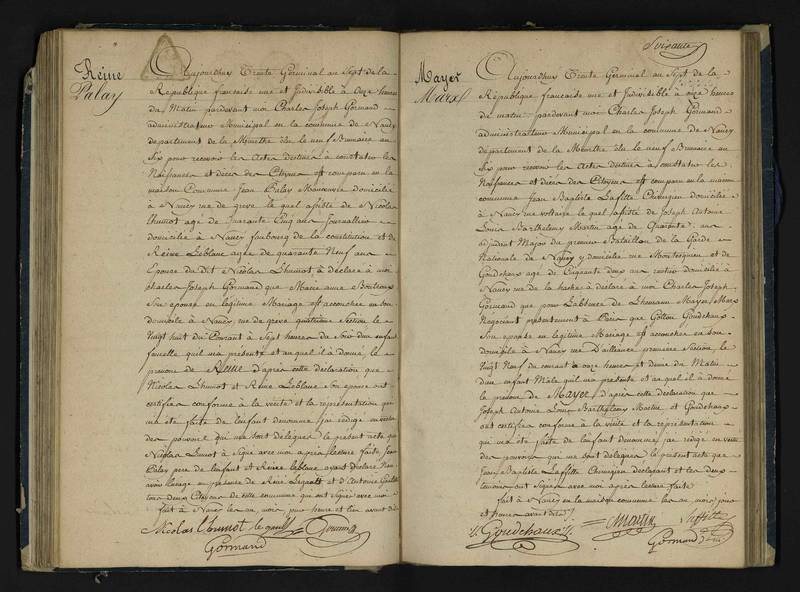 Reine
Palay
Aujourdhuy Trente Germinal an Sept de la
République francaise une et Indivisible à onze heures
du Matin pardevant moi Charles Joseph Gormand
administrateur Municipal en la commune de Nancy
departement de la Meurthe élu le neuf Brumaire an
Six pour recevoir les Actes destinés à constater les
Naissances et décès des Citoyens est comparu en la
maison Commune Jean Palay Manoeuvre domicilié
à Nancy rue de greve le quel assisté de Nicolas
thumot agé de Quarante Cinq ans Journallier
domicilié à Nancy faubourg de la constitution et de
Reine Leblanc agée de quarante Neuf ans
Epouse du Dit Nicolas Lhumot à déclaré à moi
charles Joseph Gormand que Marie anne
son epouse en legitime Mariage est accouchée en son
domicile à Nancy rue de greve quatrieme Section le
Vingt huit du Courant à Sept heures du Soir d'un enfant
femelle quil ma présenté et auquel il à donné le
prenom de Reine D'après cette déclaration que
Nicolas Lhumot et Reine Leblanc Son epouse ont
certifiés conforme à la vérité et la représentation qui
ma été faite de lenfant denommé j'ai rédigé en vertu
des pouvoirs qui me sont délégués le présent acte que
Nicolas Lumot à Signé avec moi après lecture faite Jean
Palay pere de lenfant et Reine leblanc ayant déclaré
en presence de et d'Antoine
deux Citoyens de cette commune qui ont signés avec moi
fait à Nancy les an, mois jour heure et lieu avant dit
Nicolas Lhumot
Gormand
Soixante
Mayer
Marx
Aujourdhuy Trente Germinal an Sept de la
République francaise une et Indivisible à onze heures
du matin pardevant moi Charles Joseph Gormand
administrateur Municipal en la commune de Nancy
departement de la Meurthe élu le neuf Brumaire an
Six pour recevoir les Actes destinés à constater les
Naissances et décès des Citoyens est comparu en la maison
commune Jean Baptiste Laffitte Chirurgien domicilié
à Nancy rue voltaire le quel assisté de Joseph Antoine
Louis Barthelemy Martin agé de Quarante ans
adjudant Major du premier Bataillon de la Garde
Nationale de Nancy y domicilié rue Montesquieu et de
Goudchaux agé de Cinquante Deux ans rentier domicilié à
Nancy rue de la hache à déclaré à moi Charles Joseph
Gormand que pour Labsence de Lhemann Mayer Marx
Negociant présentement à Paris que Gotton Goudchaux
Son epouse en legitime Mariage est accouchée en son
domicile à Nancy rue D'alliance premiere Section, le
Vingt Neuf du courant à onze heures et demie du Matin
d'un enfant Male quil ma présenté et au quel il à donné
le prenom de Mayer D'après cette déclaration que
Joseph Antoine Louis Barthelemy Martin et Goudchaux
ont certifiés conforme à la vérité et la représentation
qui ma été faite de lenfant denommé jai rédigé en vertu
des pouvoirs qui me sont délégués le présent acte que
Jean Baptiste Laffitte Chirurgien déclarant et les deux
témoins ont signés avec moi après lecture faite
fait à Nancy en la maison commune les an mois jour
et heure avant dit
Goudchaux
Martin
Laffitte
Gormand